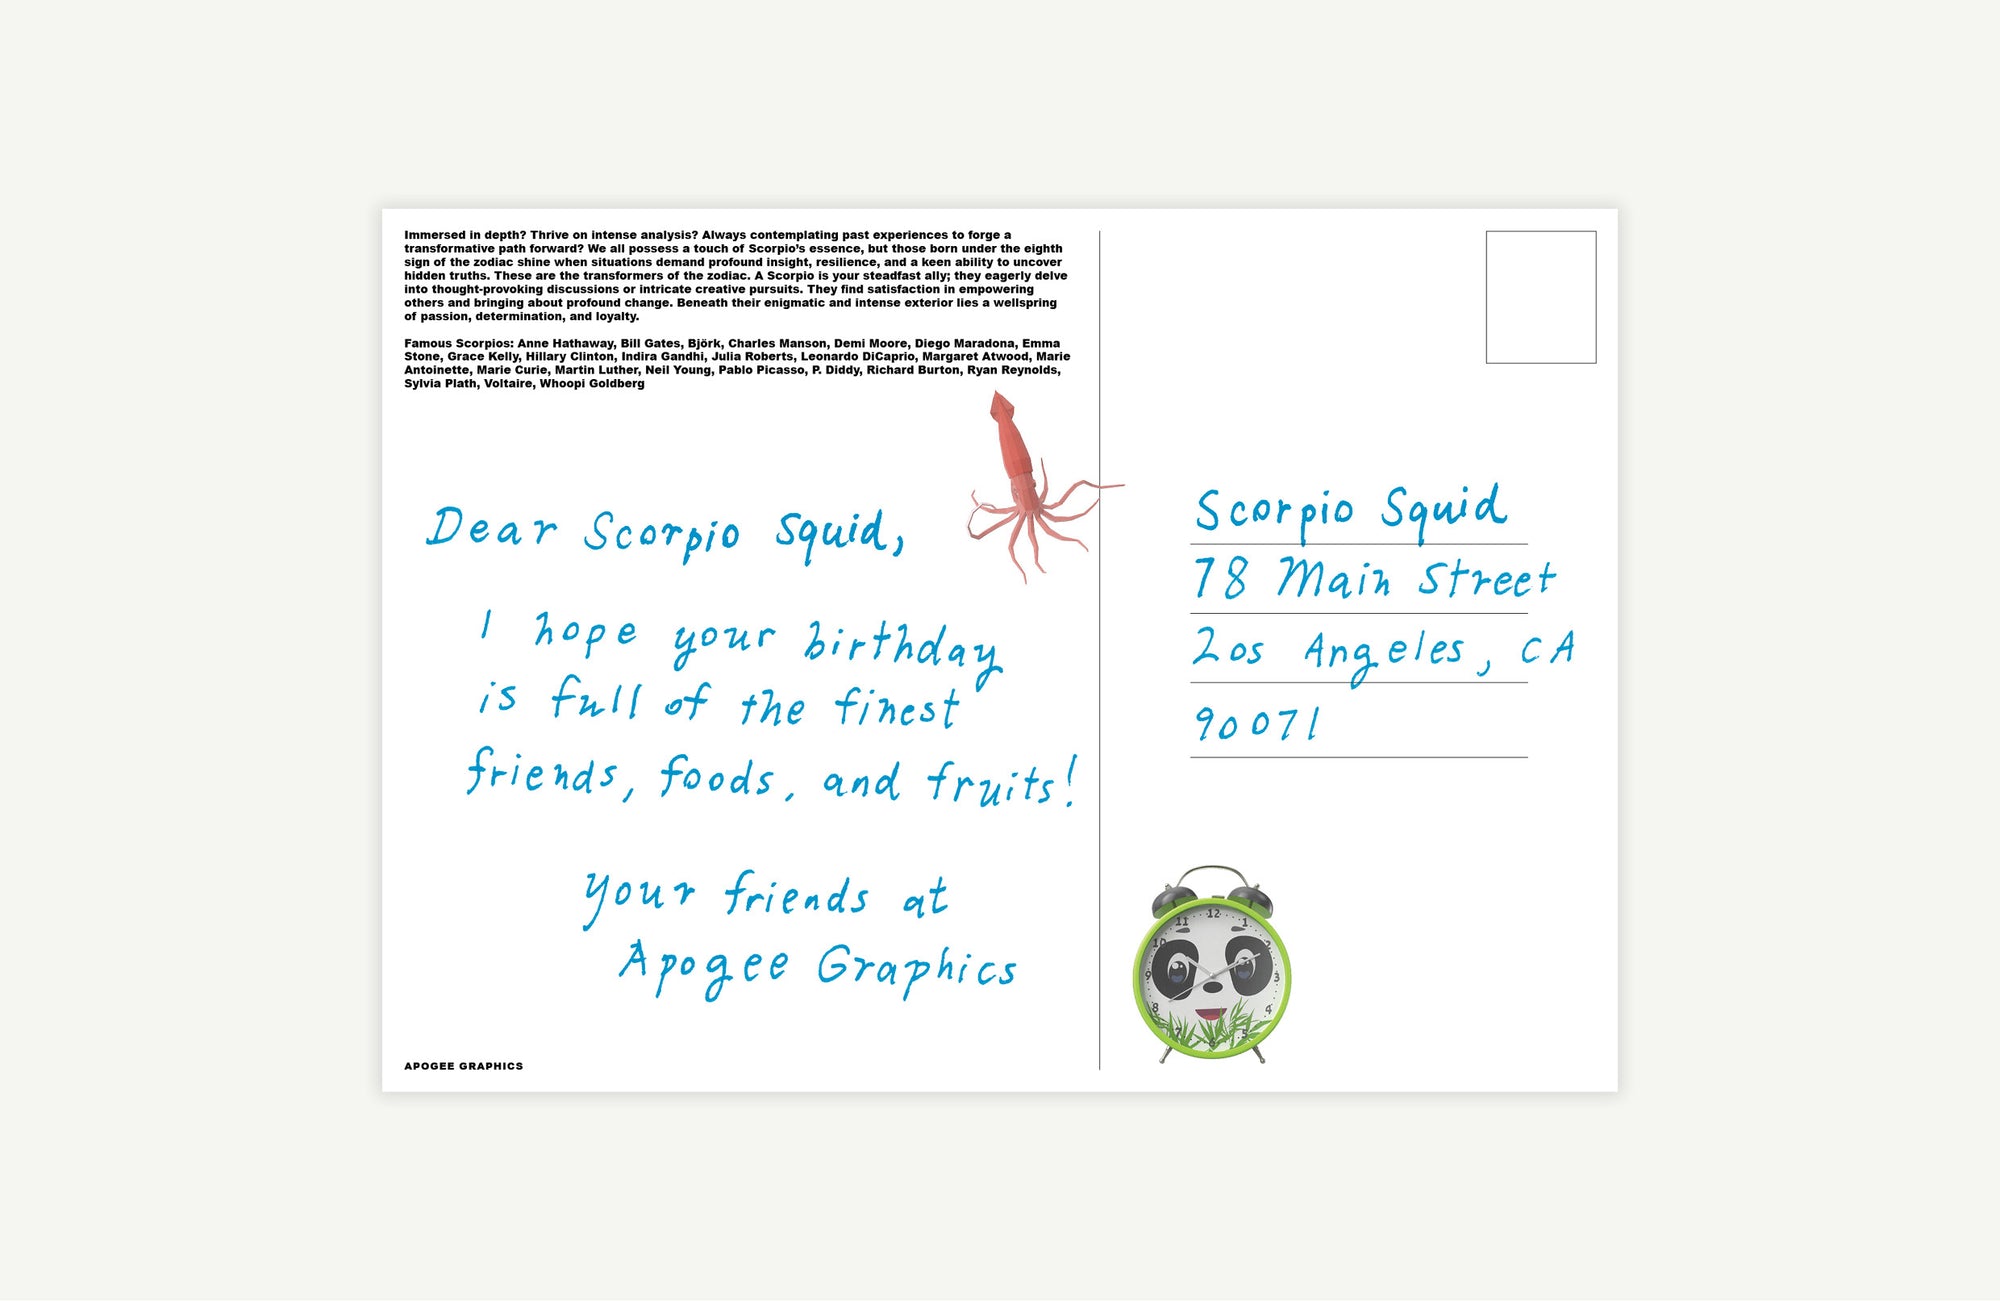 Immersed in depth? Thrive on intense analysis? Always contemplating past experiences to forge a
transformative path forward? We all possess a touch of Scorpio's essence, but those born under the eighth
sign of the zodiac shine when situations demand profound insight, resilience, and a keen ability to uncover
hidden truths. These are the transformers of the zodiac. A Scorpio is your steadfast ally; they eagerly delve
into thought-provoking discussions or intricate creative pursuits. They find satisfaction in empowering
others and bringing about profound change. Beneath their enigmatic and intense exterior lies a wellspring
of passion, determination, and loyalty.
Famous Scorpios: Anne Hathaway, Bill Gates, Björk, Charles Manson, Demi Moore, Diego Maradona, Emma
Stone, Grace Kelly, Hillary Clinton, Indira Gandhi, Julia Roberts, Leonardo DiCaprio, Margaret Atwood, Marie
Antoinette, Marie Curie, Martin Luther, Neil Young, Pablo Picasso, P. Diddy, Richard Burton, Ryan Reynolds,
Sylvia Plath, Voltaire, Whoopi Goldberg
Dear Scorpio Squid,
I hope your birthday
is full of the finest
friends, foods, and fruits!
your friends at
Apogee Graphics
APOGEE GRAPHICS
Scorpio Squid
78 Main Street
Los Angeles, CA
90071
12
11 1
10 2
9 3
8 4
7 5
6